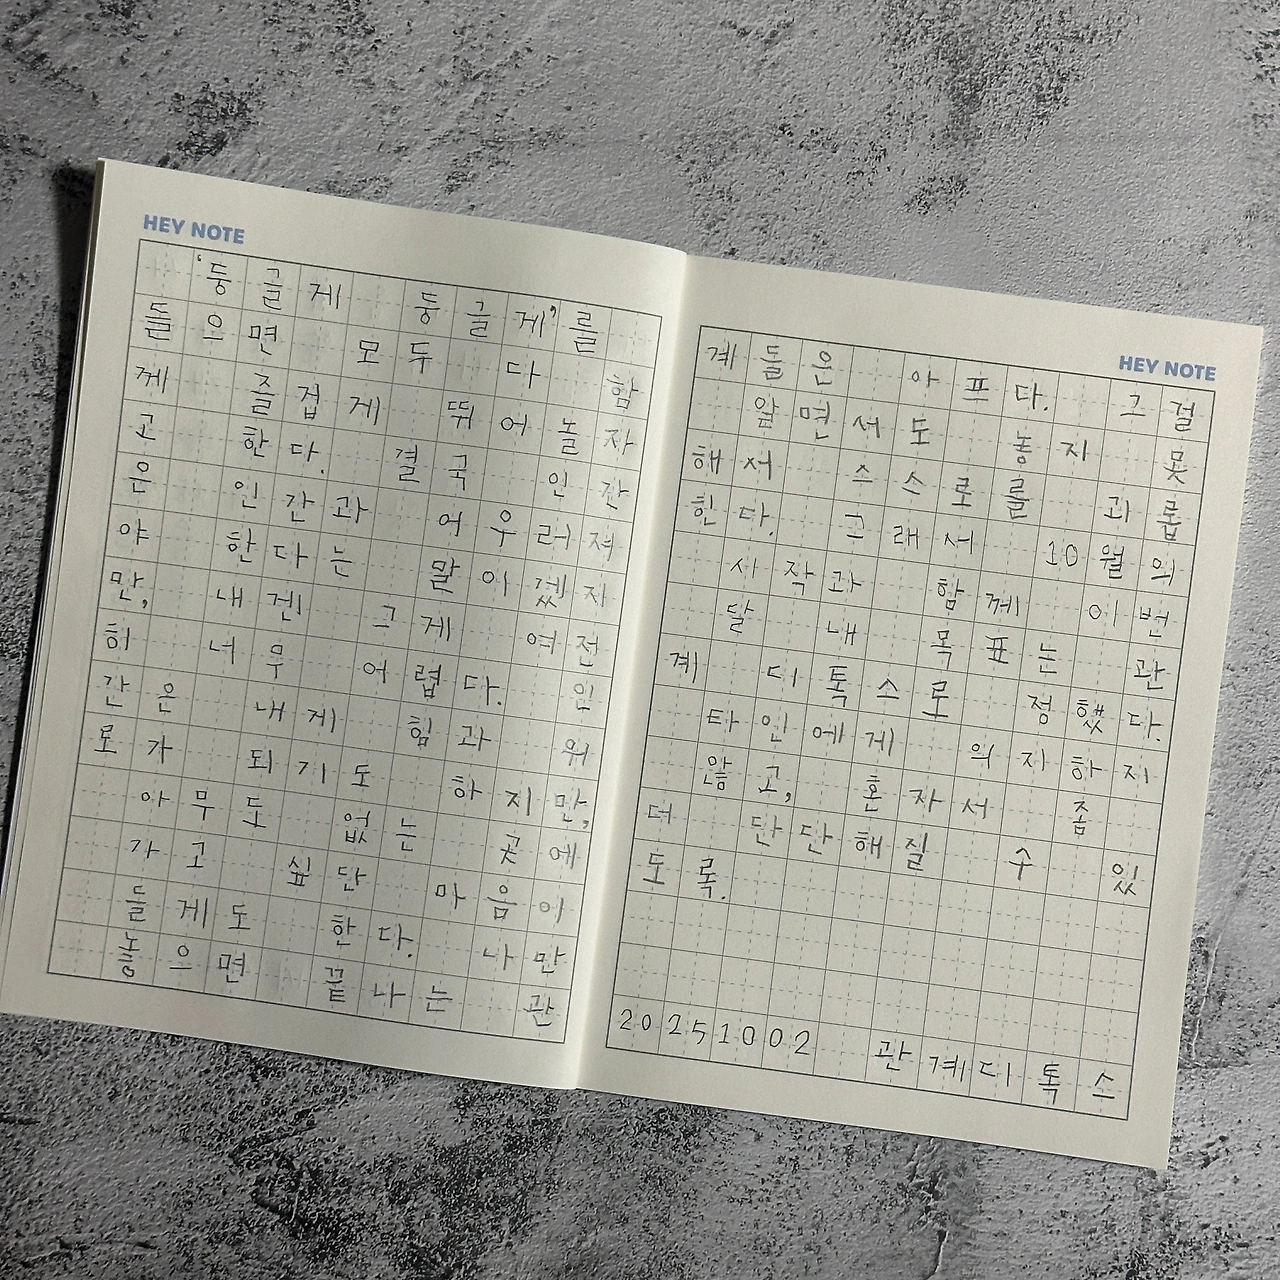 HEY NOTE
'둥글게 둥글게'를
들으면 모두 다 함
께 즐겁게 뛰어놀자
고 한다. 결국 인간
은 인간과 어우러져
야 한다는 말이겠지
만, 내겐 그게 여전
히 너무 어렵다. 인
간은 내게 힘과 위
로가 되기도 하지만,
아무도 없는 곳에
가고 싶단 마음이
들게도 한다. 나만
놓으면 끝나는 관
HEY NOTE
계들은 아프다. 그걸
알면서도 놓지 못
해서 스스로를 괴롭
힌다. 그래서 10월의
시작과 함께 이번
달 내 목표는 관
계 디톡스로 정했다.
타인에게 의지하지
않고, 혼자서 좀
더 단단해질 수 있
도록.
20251002 관계디톡스